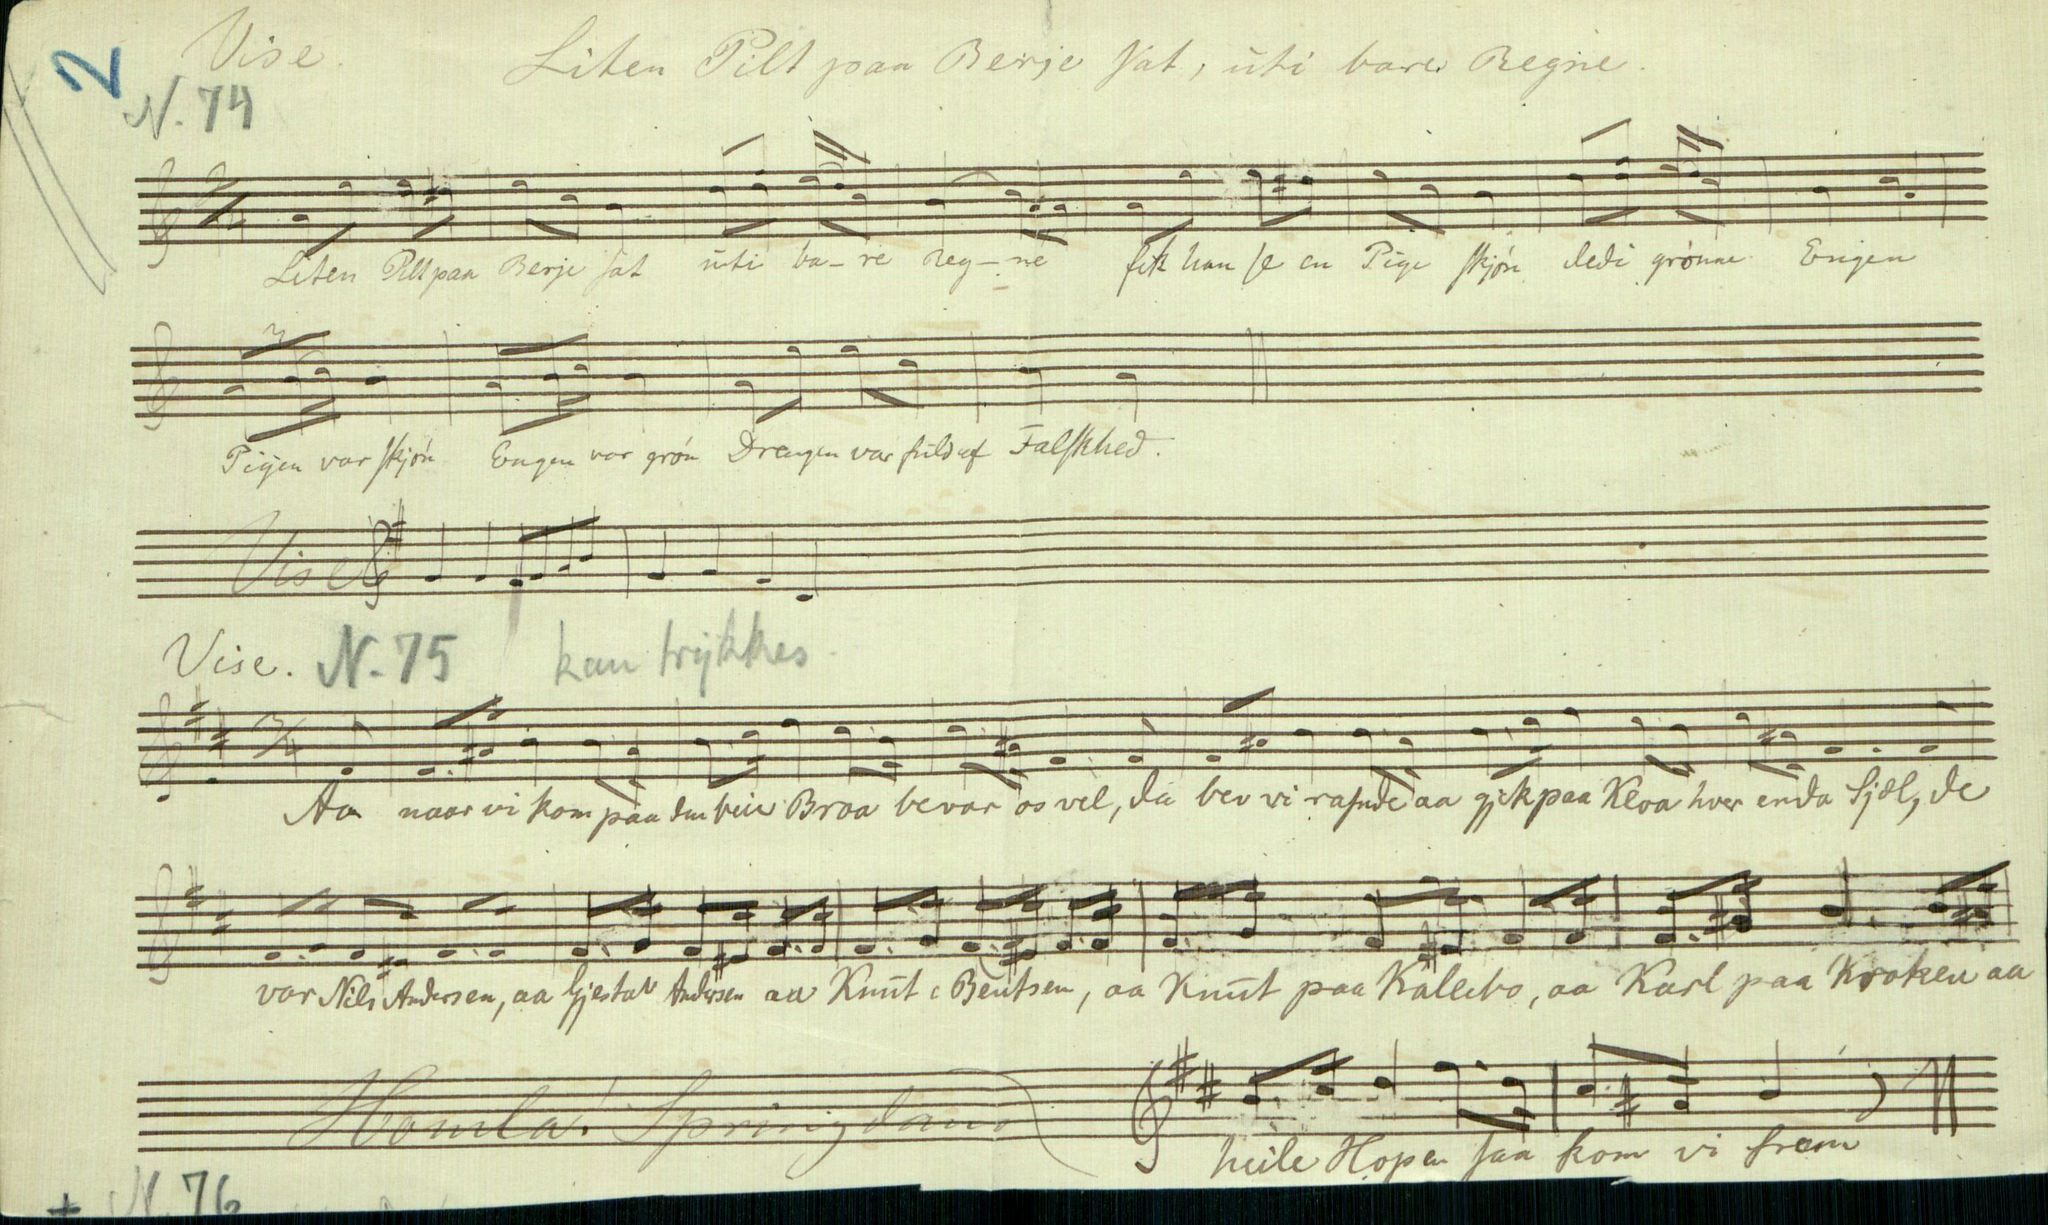 2
Vise. Liten Pilt paa Berje sat, uti bare Regne.
N. 74
2/4
Liten Pilt paa Berje sat uti ba-re Reg-ne fik han se en Pige skjøn dedi grønne Engen
3
Pigen var skjøn Engen var grøn Drengen var fuld af Falskhed.
Vise
Vise. N. 75 kan trykkes.
3/4
Aa naar vi kom paa den Broa bevar os vel, da blev vi aa gjek paa Kloa hver enda Sjæl, de
var Nils Andersen, aa Gjestav Andersen aa Knut Bentsen, aa Knut paa Kallebo, aa Karl paa Kroken aa
Homla! Springdans heile Hopen saa kom vi frem
+ N. 76